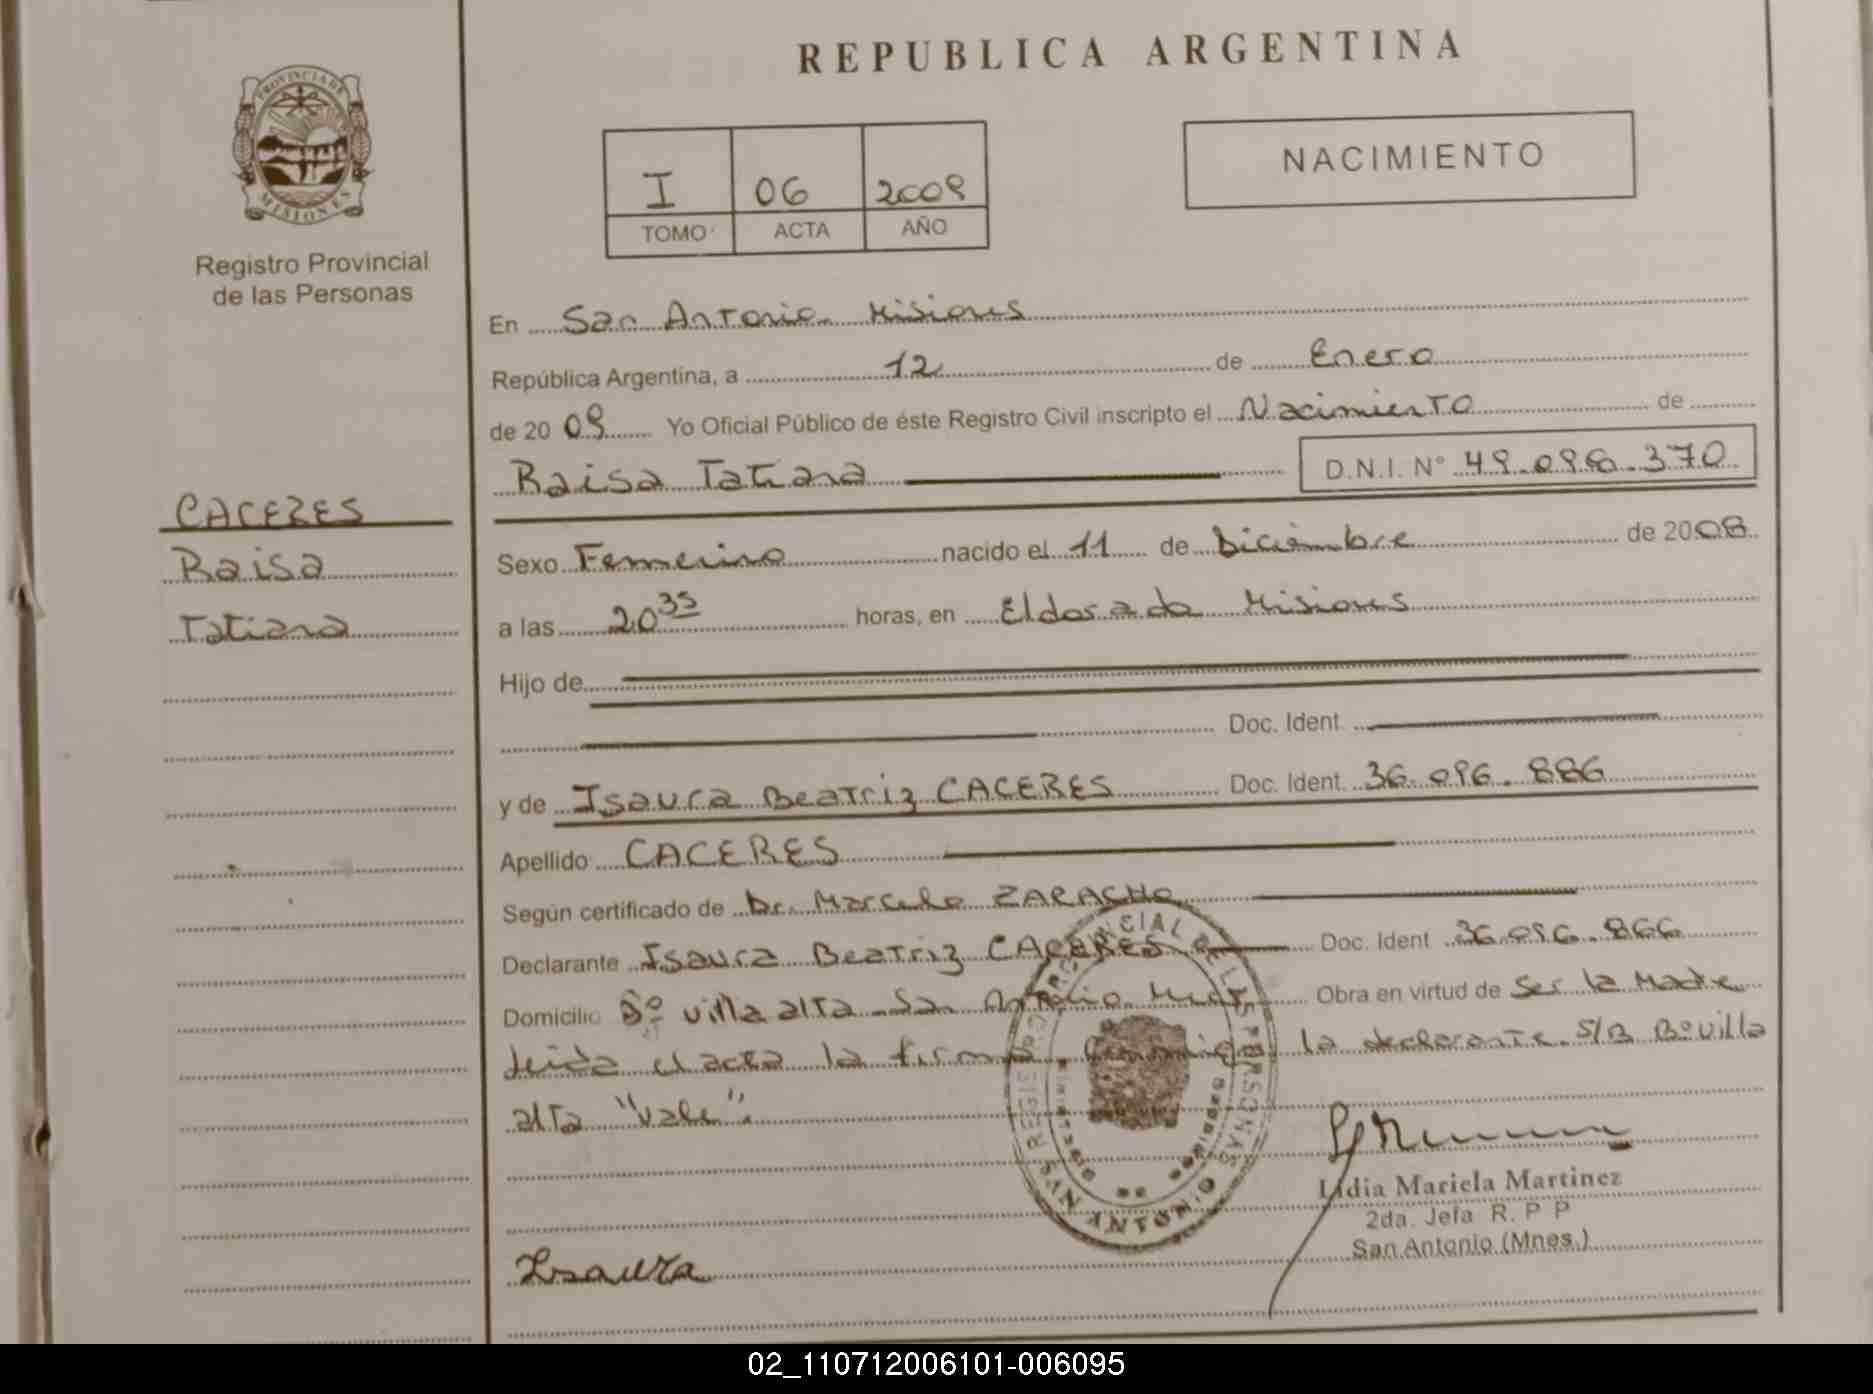 REPUBLICA ARGENTINA
PROVINCIA DE
MISIONES
Registro Provincial
de las Personas
I 06 2009
TOMO ACTA AÑO
NACIMIENTO
En San Antonio Misiones
República Argentina, a 12 de Enero
de 20 09 Yo Oficial Público de éste Registro Civil inscripto el Nacimiento de
Raisa Tatiana D.N.I. Nº 49.098.370
CACERES
Raisa
Tatiana
Sexo Femenino nacido el 11 de Diciembre de 2008
a las 20 35 horas, en Eldorado Misiones
Hijo de
Doc. Ident.
y de Isaura Beatriz CACERES Doc. Ident. 36.096.886
Apellido CACERES
Según certificado de Dr. Marcelo ZARACHO
Declarante Isaura Beatriz CACERES Doc. Ident 36.096.866
Domicilio Bº villa alta San Antonio Obra en virtud de Ser la Madre
Leida el acta la firma la declarante S/B Bº villa
alta "vale".
Lidia Mariela Martinez
2da. Jefa R. P P
San Antonio (Mnes.)
Isaura
02_110712006101-006095